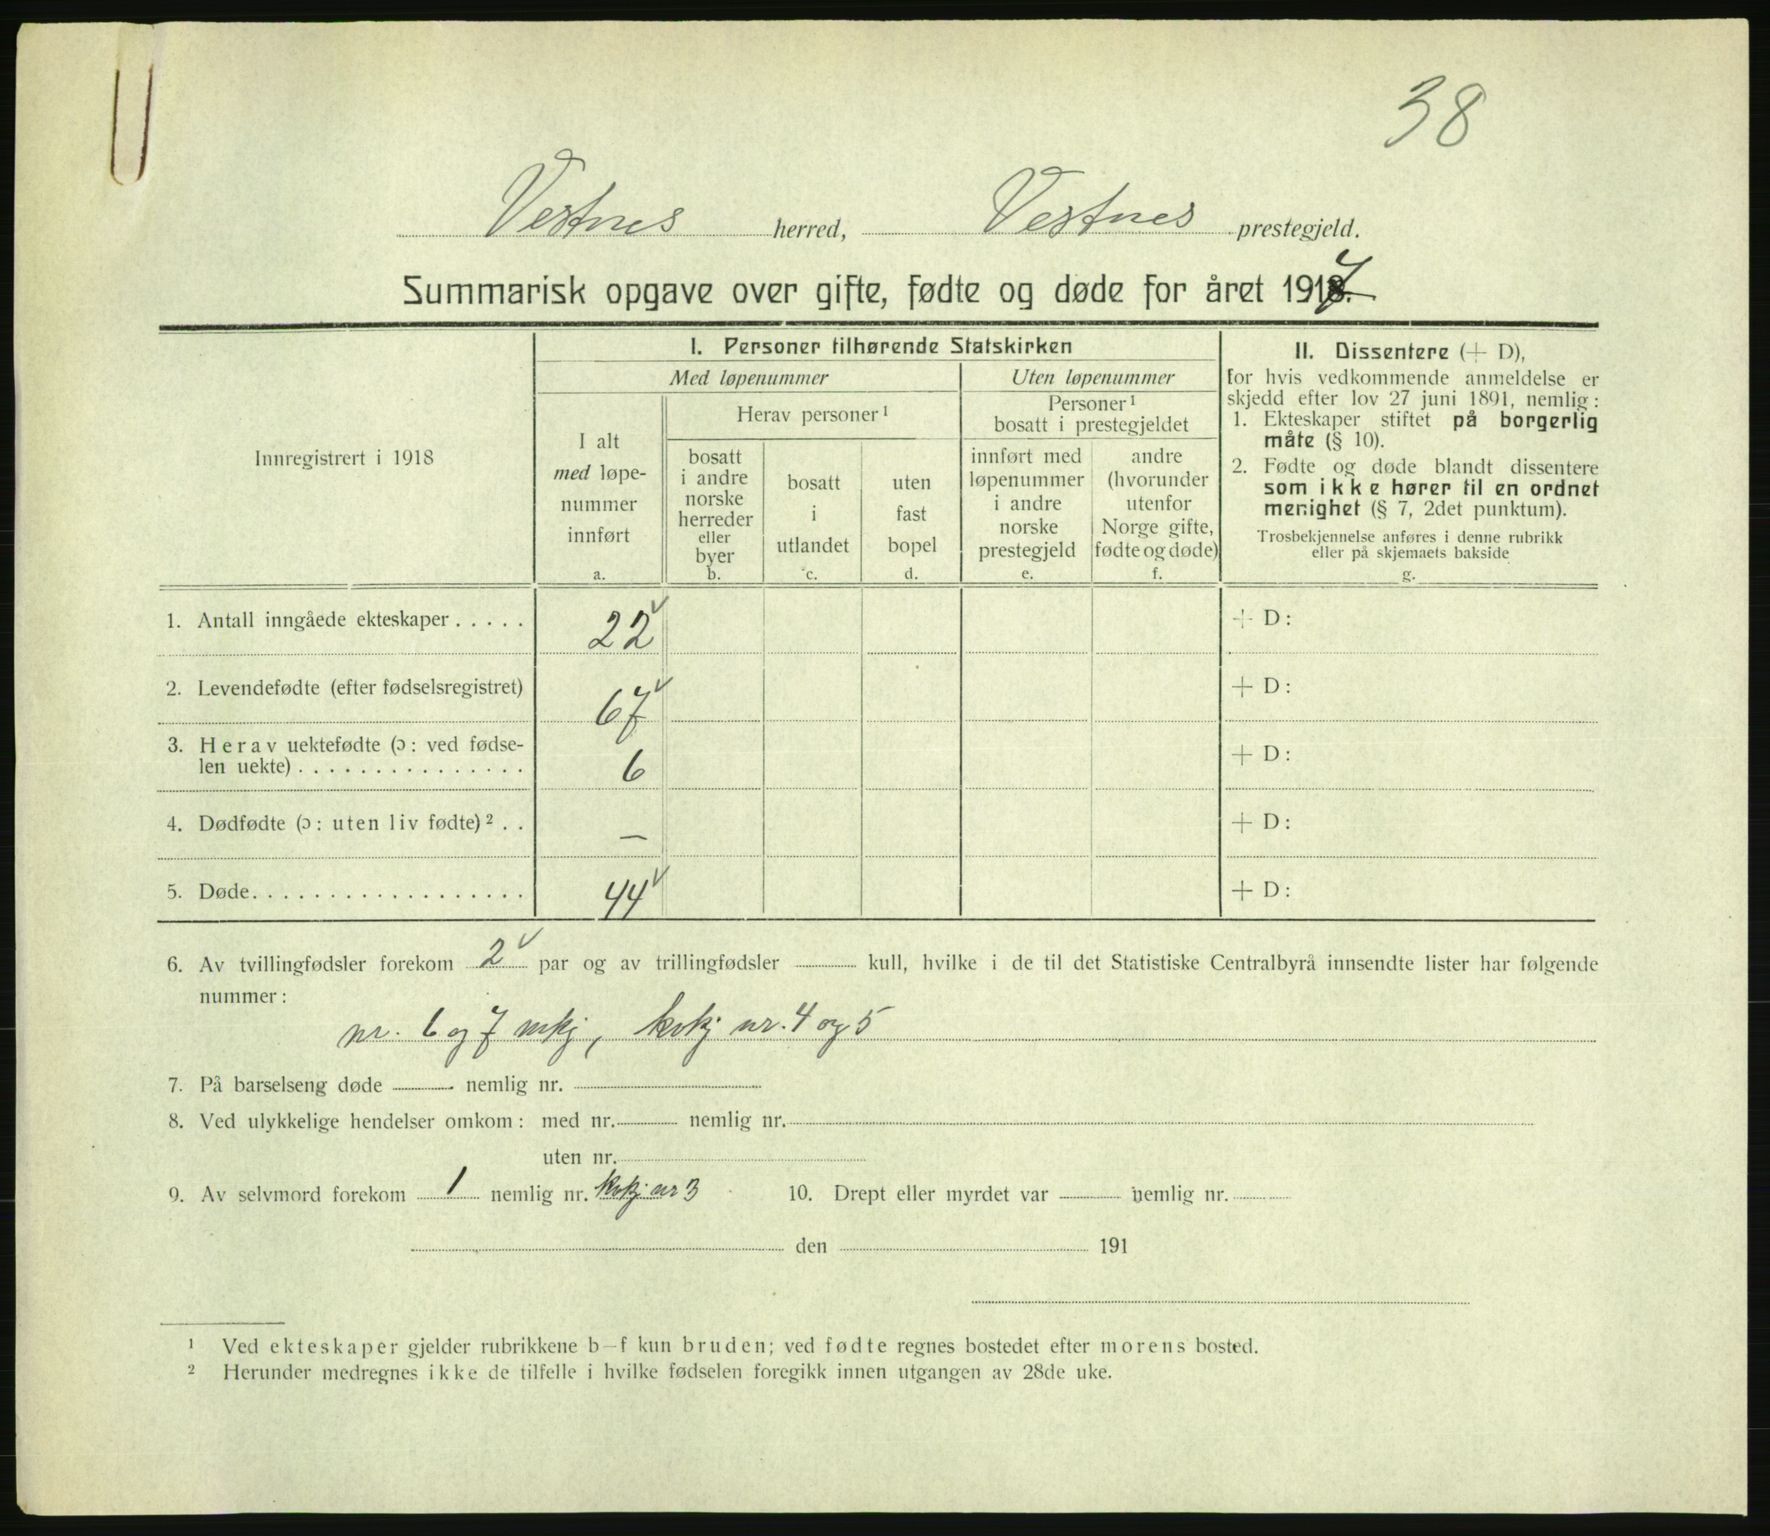 38
Vestnes herred, Vestnes prestegjeld.
Summarisk opgave over gifte, fødte og døde for året 1917
I. Personer tilhørende Statskirken
II. Dissentere (+ D),
for hvis vedkommende anmeldelse er
skjedd efter lov 27 juni 1891, nemlig:
1. Ekteskaper stiftet på borgerlig
måte (§ 10).
2. Fødte og døde blandt dissentere
som ikke hører til en ordnet
menighet (§ 7, 2det punktum).
Trosbekjennelse anføres i denne rubrikk
eller på skjemaets bakside
g.
Med løpenummer
Uten løpenummer
Innregistrert i 1918
I alt
med løpe-
nummer
innført
a.
Herav personer ¹
bosatt
i andre
norske
herreder
eller
byer
b.
bosatt
i
utlandet
c.
uten
fast
bopel
d.
Personer ¹
bosatt i prestegjeldet
innført med
løpenummer
i andre
norske
prestegjeld
e.
andre
(hvorunder
utenfor
Norge gifte,
fødte og døde)
f.
1. Antall inngåede ekteskaper..... 22 ✓ + D:
2. Levendefødte (efter fødselsregistret) 67 ✓ + D:
3. Herav uektefødte (ɔ: ved fødse-
len uekte)............... 6 + D:
4. Dødfødte (ɔ: uten liv fødte) ².. — + D:
5. Døde.................. 44 ✓ + D:
6. Av tvillingfødsler forekom 2 ✓ par og av trillingfødsler ........ kull, hvilke i de til det Statistiske Centralbyrå innsendte lister har følgende
nummer:
nr. 6 og 7 mkj, kvkj nr. 4 og 5
7. På barselseng døde ........ nemlig nr. ........
8. Ved ulykkelige hendelser omkom: med nr. ........ nemlig nr. ........
uten nr. ........
9. Av selvmord forekom 1 nemlig nr. kvkj nr 3 10. Drept eller myrdet var ........ nemlig nr. ........
........ den ........ 191
¹ Ved ekteskaper gjelder rubrikkene b—f kun bruden; ved fødte regnes bostedet efter morens bosted.
² Herunder medregnes ikke de tilfelle i hvilke fødselen foregikk innen utgangen av 28de uke.